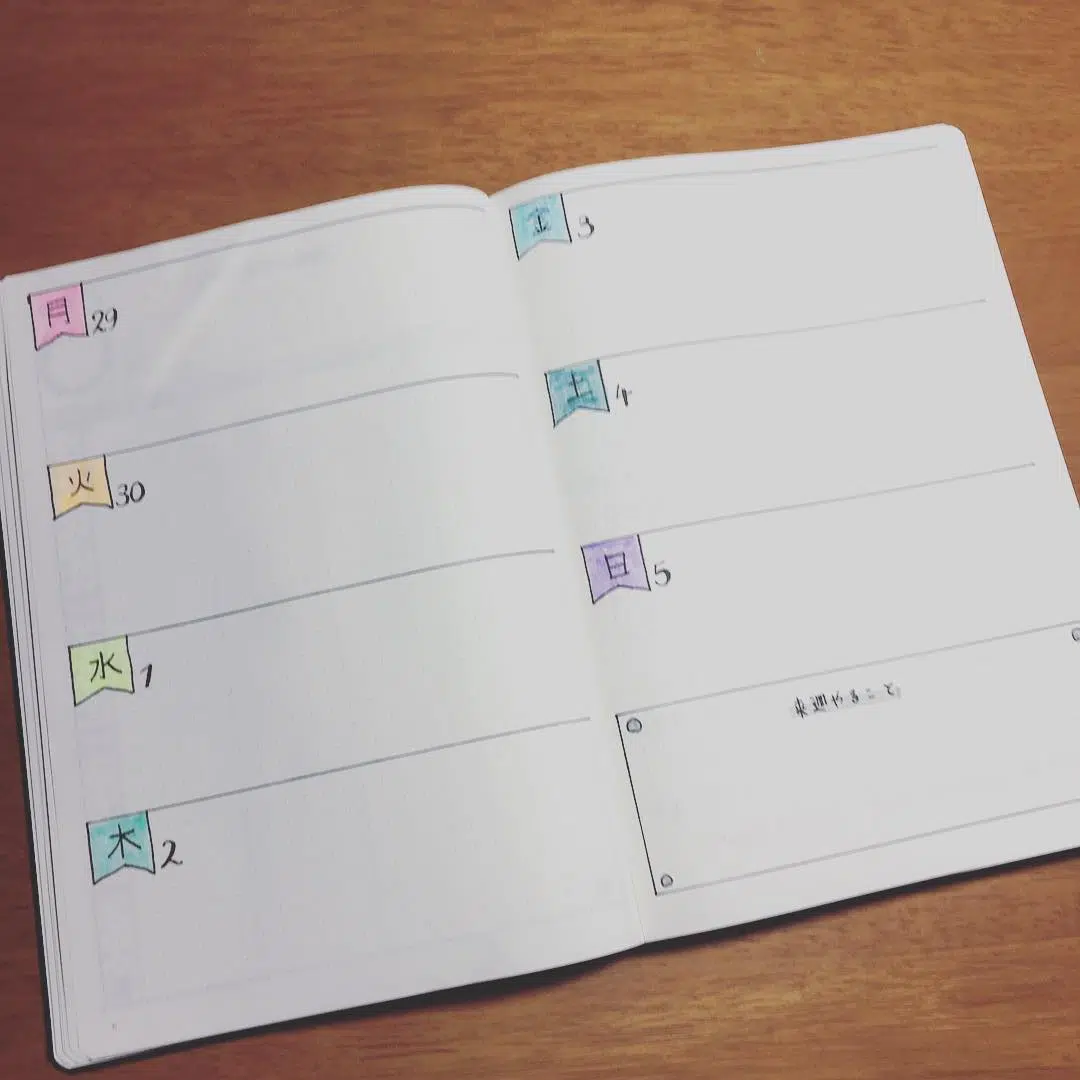 月 29
火 30
水 1
木 2
金 3
土 4
日 5
来週やること